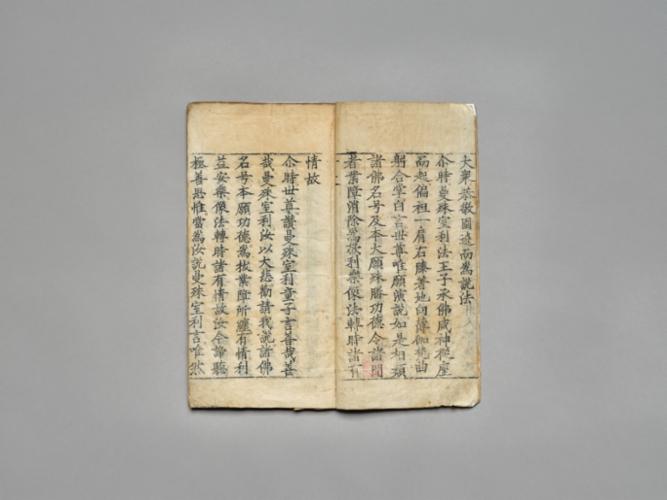 大衆恭敬圍遶而爲說法
尒時曼殊室利法王子承佛威神從座
而起偏袒一肩右膝著地向薄伽梵曲
躬合掌白言世尊唯願演說如是相類
諸佛名号及本大願殊勝功德令諸聞
者業障消除爲欲利樂像法轉時諸有
情故
尒時世尊讚曼殊室利童子言善哉善
哉曼殊室利汝以大悲勸請我說諸佛
名号本願功德爲拔業障所纏有情利
益安樂像法轉時諸有情故汝今諦聽
極善思惟當爲汝說曼殊室利言唯然